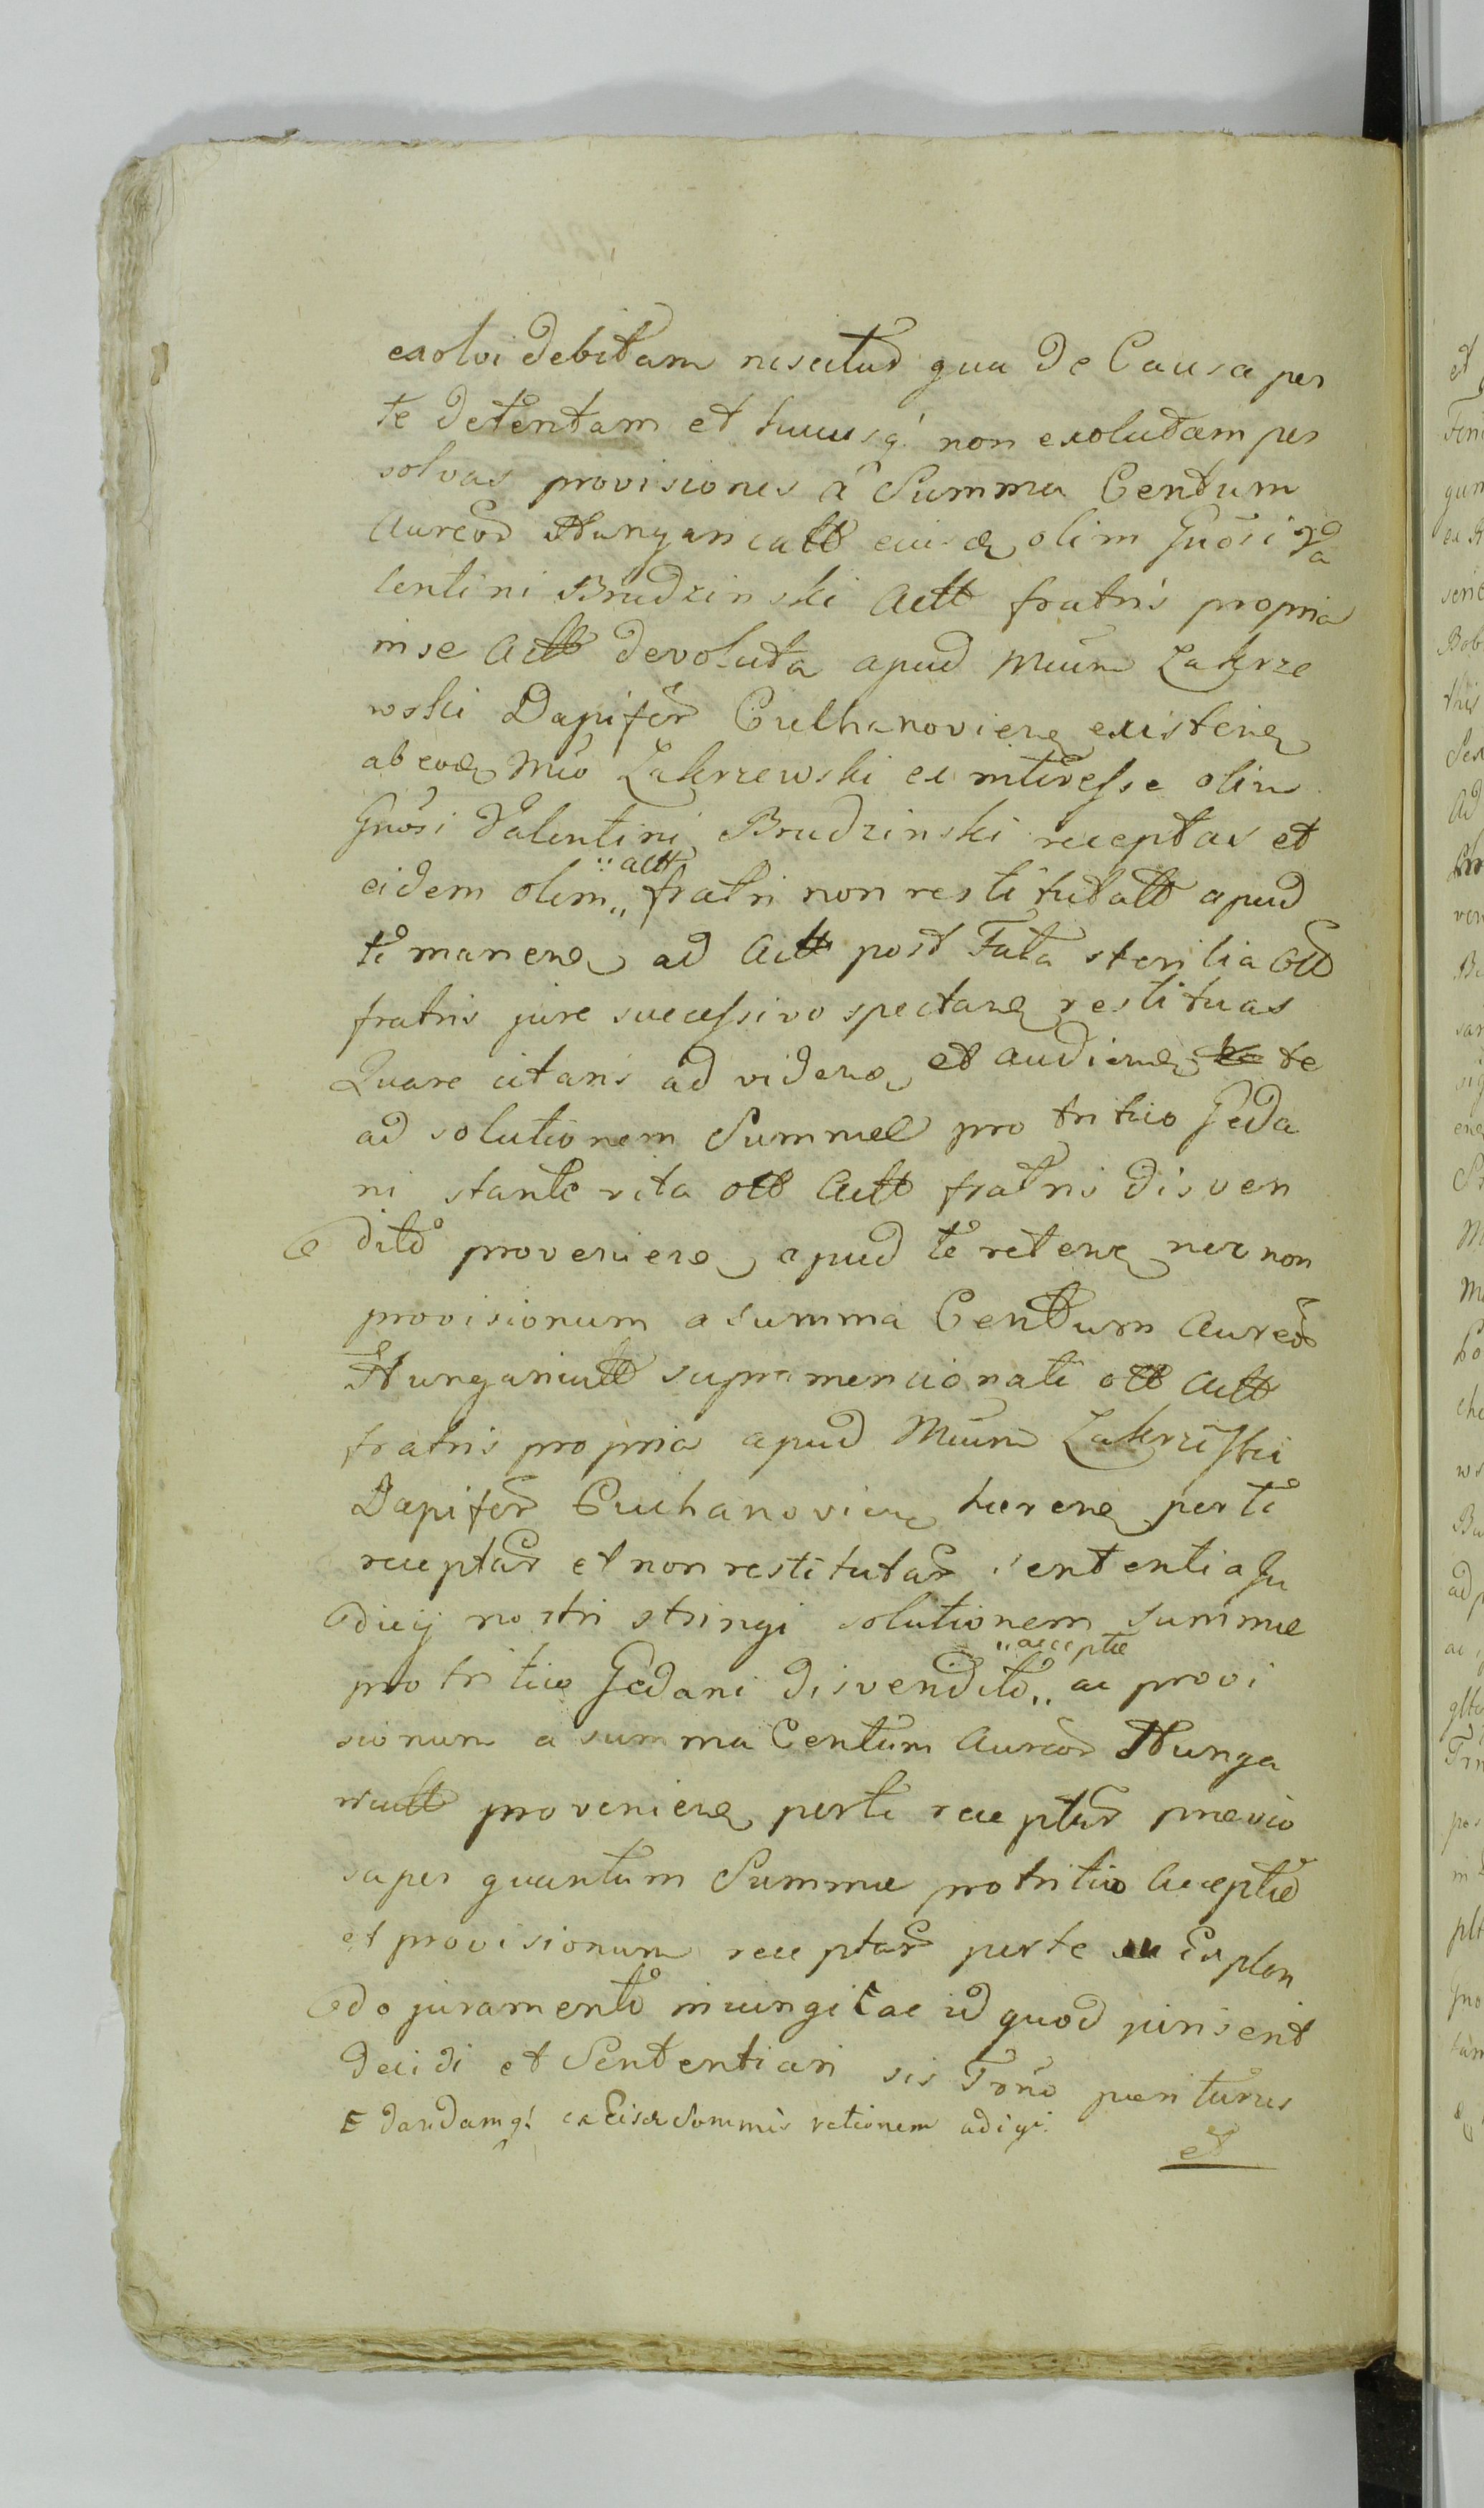 exolvi debitam nescitur qua de Causa per
te detentam et hucusq́ non exolutam per
solvas provisiones á Summa Centum
Aureor Hungaricalt eiusd olim Gnosi Va
lentini Brudzinski Actt fratris propria
in se Actt devoluta apud Mcum Zakrze
wski Dapifer Ciechanovien existen
ab eod Mco Zakrzewski ex interesse olim
Gnosi Valentini Brudzinski receptas et
eidem olim ,, :: actt fratri non restitutatt apud
te manen ad Actt post Fata sterilia ott
fratris jure successivo spectan restituas
Quare citaris ad viden et audien te
ad solutionem Summae pro tritico Geda
ni stante vita ott Actt fratris disven
dito provenien apud te reten nec non
provisionum a summa Centum Aureor
Hungaricatt supra mencionati ott Actt
fratris propria apud Mcum Zakrzewski
Dapifer Ciechanovien haeren per te
receptar et non restitutar sententia Ju
dicij nostri stringi solutionem summae
pro tritico Gedani disvendito ,, ,, acceptae ac provi
sionum a summa Centum Aureor Hunga
ricatt provenien per te receptar praevio
super quantum Summae pro tritico acceptae
et provisionum receptar per te Explen
do juramento iniungi ac id quod juris erit
decidi et Sententiari sis Trno pariturus
dandamq́ ex Eisd Summis rationem adigi.
et